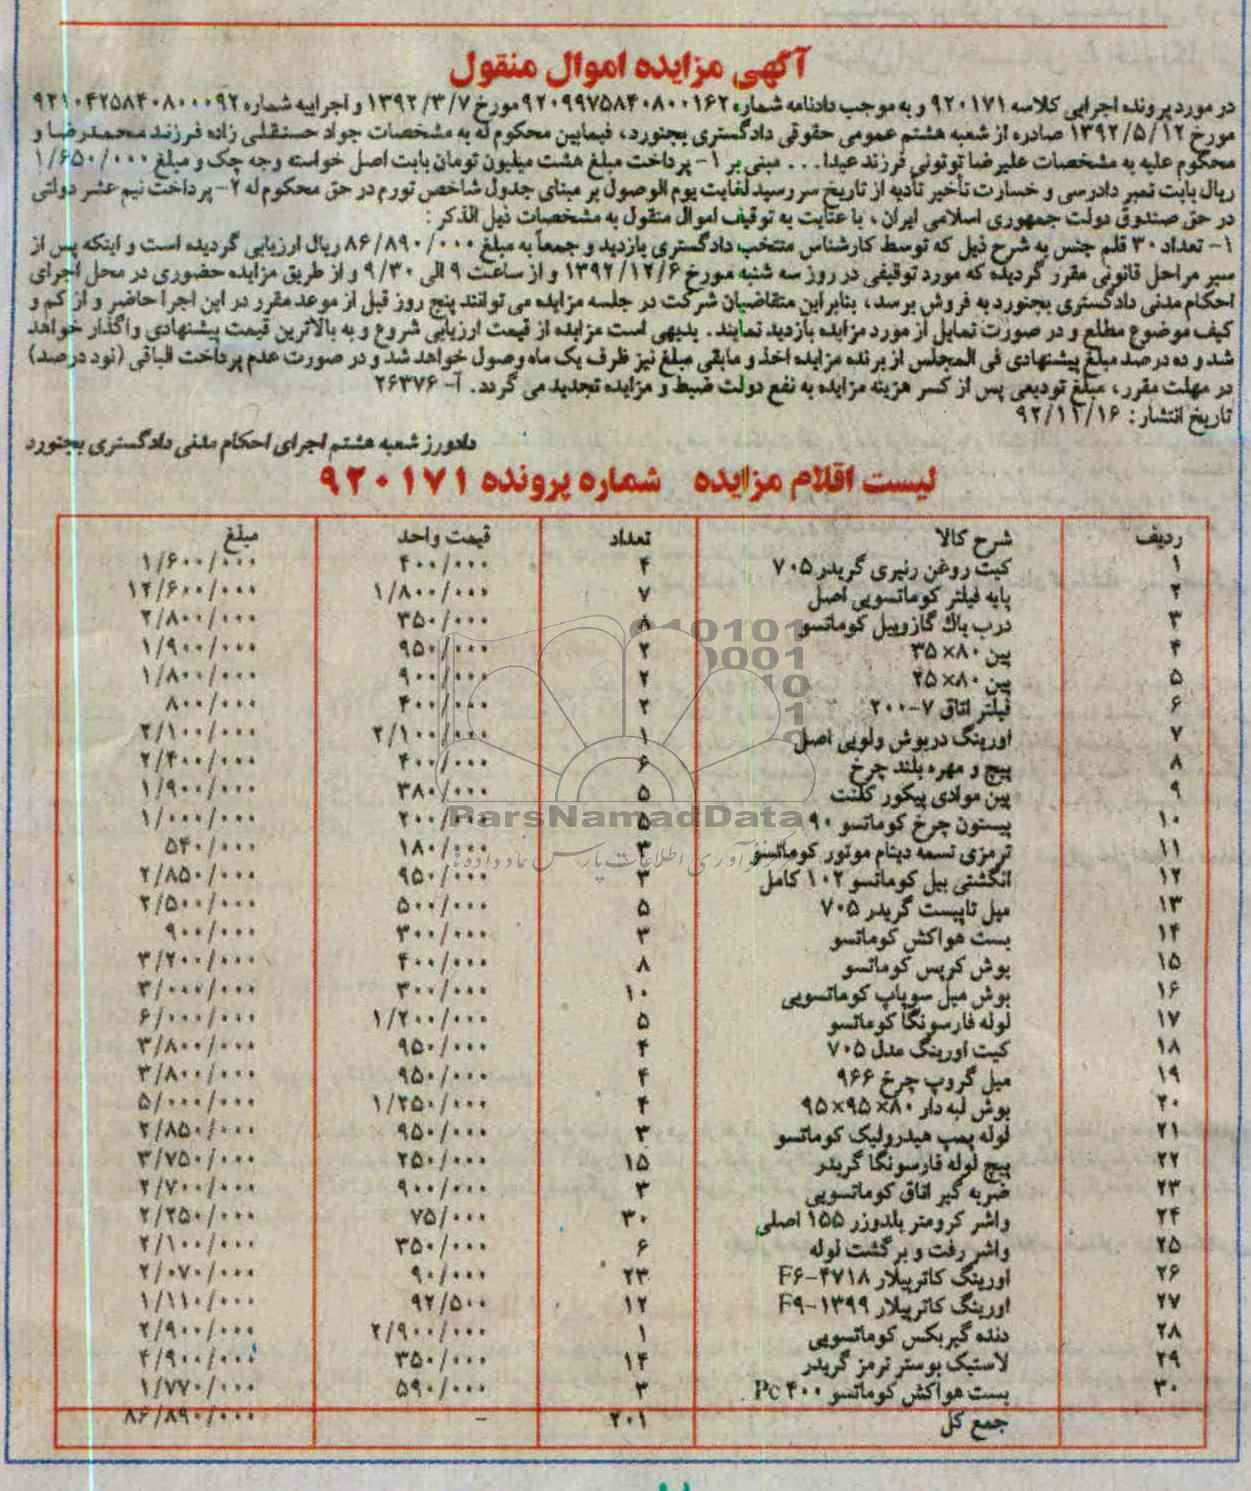 آگهی مزایده اموال منقول
در مورد پرونده اجرایی کلاسه ۹۲۰۱۷۱ و به موجب دادنامه شماره ۹۲۰۹۹۷۵۸۴۰۸۰۰۱۶۲ مورخ ۱۳۹۲/۳/۷ و اجراییه شماره ۹۲۱۰۴۲۵۸۴۰۸۰۰۰۹۲
مورخ ۱۳۹۲/۵/۱۲ صادره از شعبه هشتم عمومی حقوقی دادگستری بجنورد، فیمابین محکوم له به مشخصات جواد حسنقلی زاده فرزند محمدرضا و
محکوم علیه به مشخصات علیرضا توتونی فرزند عیدا... مبنی بر ۱- پرداخت مبلغ هشت میلیون تومان بابت اصل خواسته وجه چک و مبلغ ۱/۶۵۰/۰۰۰
ریال بابت تمبر دادرسی و خسارت تأخیر تأدیه از تاریخ سررسید لغایت یوم الوصول بر مبنای جدول شاخص تورم در حق محکوم له ۲- پرداخت نیم عشر دولتی
در حق صندوق دولت جمهوری اسلامی ایران، با عنایت به توقیف اموال منقول به مشخصات ذیل الذکر :
۱- تعداد ۳۰ قلم جنس به شرح ذیل که توسط کارشناس منتخب دادگستری بازدید و جمعاً به مبلغ ۸۶/۸۹۰/۰۰۰ ریال ارزیابی گردیده است و اینکه پس از
سیر مراحل قانونی مقرر گردیده که مورد توقیفی در روز سه شنبه مورخ ۱۳۹۲/۱۲/۶ و از ساعت ۹ الی ۹/۳۰ و از طریق مزایده حضوری در محل اجرای
احکام مدنی دادگستری بجنورد به فروش برسد، بنابراین متقاضیان شرکت در جلسه مزایده می توانند پنج روز قبل از موعد مقرر در این اجرا حاضر و از کم و
کیف موضوع مطلع و در صورت تمایل از مورد مزایده بازدید نمایند. بدیهی است مزایده از قیمت ارزیابی شروع و به بالاترین قیمت پیشنهادی واگذار خواهد
شد و ده درصد مبلغ پیشنهادی فی المجلس از برنده مزایده اخذ و مابقی مبلغ نیز ظرف یک ماه وصول خواهد شد و در صورت عدم پرداخت الباقی (نود درصد)
در مهلت مقرر، مبلغ تودیعی پس از کسر هزینه مزایده به نفع دولت ضبط و مزایده تجدید می گردد. آ- ۲۶۳۷۶
تاریخ انتشار: ۹۲/۱۱/۱۶
دادورز شعبه هشتم اجرای احکام مدنی دادگستری بجنورد
لیست اقلام مزایده شماره پرونده ۹۲۰۱۷۱
ردیف شرح کالا تعداد قیمت واحد مبلغ
۱ کیت روغن رنیری گریدر ۷۰۵ ۴ ۴۰۰/۰۰۰ ۱/۶۰۰/۰۰۰
۲ پایه فیلتر کوماتسویی اصل ۷ ۱/۸۰۰/۰۰۰ ۱۲/۶۰۰/۰۰۰
۳ درب باک گازوییل کوماتسو ۸ ۳۵۰/۰۰۰ ۲/۸۰۰/۰۰۰
۴ پین ۸۰×۳۵ ۲ ۹۵۰/۰۰۰ ۱/۹۰۰/۰۰۰
۵ پین ۸۰×۲۵ ۲ ۹۰۰/۰۰۰ ۱/۸۰۰/۰۰۰
۶ فیلتر اتاق ۷-۲۰۰ ۲ ۴۰۰/۰۰۰ ۸۰۰/۰۰۰
۷ اورینگ دربوش ولویی اصل ۱ ۲/۱۰۰/۰۰۰ ۲/۱۰۰/۰۰۰
۸ پیچ و مهره بلند چرخ ۶ ۴۰۰/۰۰۰ ۲/۴۰۰/۰۰۰
۹ پین موادی پیکور کلنت ۵ ۳۸۰/۰۰۰ ۱/۹۰۰/۰۰۰
۱۰ پیستون چرخ کوماتسو ۹۰ ۵ ۲۰۰/۰۰۰ ۱/۰۰۰/۰۰۰
۱۱ ترمزی تسمه دینام موتور کوماتسو ۳ ۱۸۰/۰۰۰ ۵۴۰/۰۰۰
۱۲ انگشتی بیل کوماتسو ۱۰۲ کامل ۳ ۹۵۰/۰۰۰ ۲/۸۵۰/۰۰۰
۱۳ میل تاپیست گریدر ۷۰۵ ۵ ۵۰۰/۰۰۰ ۲/۵۰۰/۰۰۰
۱۴ بست هواکش کوماتسو ۳ ۳۰۰/۰۰۰ ۹۰۰/۰۰۰
۱۵ بوش کرپس کوماتسو ۸ ۴۰۰/۰۰۰ ۳/۲۰۰/۰۰۰
۱۶ بوش میل سوپاپ کوماتسویی ۱۰ ۳۰۰/۰۰۰ ۳/۰۰۰/۰۰۰
۱۷ لوله فارسونگا کوماتسو ۵ ۱/۲۰۰/۰۰۰ ۶/۰۰۰/۰۰۰
۱۸ کیت اورینگ مدل ۷۰۵ ۴ ۹۵۰/۰۰۰ ۳/۸۰۰/۰۰۰
۱۹ میل گروپ چرخ ۹۶۶ ۴ ۹۵۰/۰۰۰ ۳/۸۰۰/۰۰۰
۲۰ بوش لبه دار ۸۰×۹۵×۹۵ ۴ ۱/۲۵۰/۰۰۰ ۵/۰۰۰/۰۰۰
۲۱ لوله پمپ هیدرولیک کوماتسو ۳ ۹۵۰/۰۰۰ ۲/۸۵۰/۰۰۰
۲۲ پیچ لوله فارسونگا گریدر ۱۵ ۲۵۰/۰۰۰ ۳/۷۵۰/۰۰۰
۲۳ ضربه گیر اتاق کوماتسویی ۳ ۹۰۰/۰۰۰ ۲/۷۰۰/۰۰۰
۲۴ واشر کرومتر بلدوزر ۱۵۵ اصلی ۳۰ ۷۵/۰۰۰ ۲/۲۵۰/۰۰۰
۲۵ واشر رفت و برگشت لوله ۶ ۳۵۰/۰۰۰ ۲/۱۰۰/۰۰۰
۲۶ اورینگ کاترپیلار F۶-۴۷۱۸ ۲۳ ۹۰/۰۰۰ ۲/۰۷۰/۰۰۰
۲۷ اورینگ کاترپیلار F۹-۱۳۹۹ ۱۲ ۹۲/۵۰۰ ۱/۱۱۰/۰۰۰
۲۸ دنده گیربکس کوماتسویی ۱ ۲/۹۰۰/۰۰۰ ۲/۹۰۰/۰۰۰
۲۹ لاستیک بوستر ترمز گریدر ۱۴ ۳۵۰/۰۰۰ ۴/۹۰۰/۰۰۰
۳۰ بست هواکش کوماتسو Pc ۴۰۰ ۳ ۵۹۰/۰۰۰ ۱/۷۷۰/۰۰۰
جمع کل ۲۰۱ - ۸۶/۸۹۰/۰۰۰
ParsNamadData